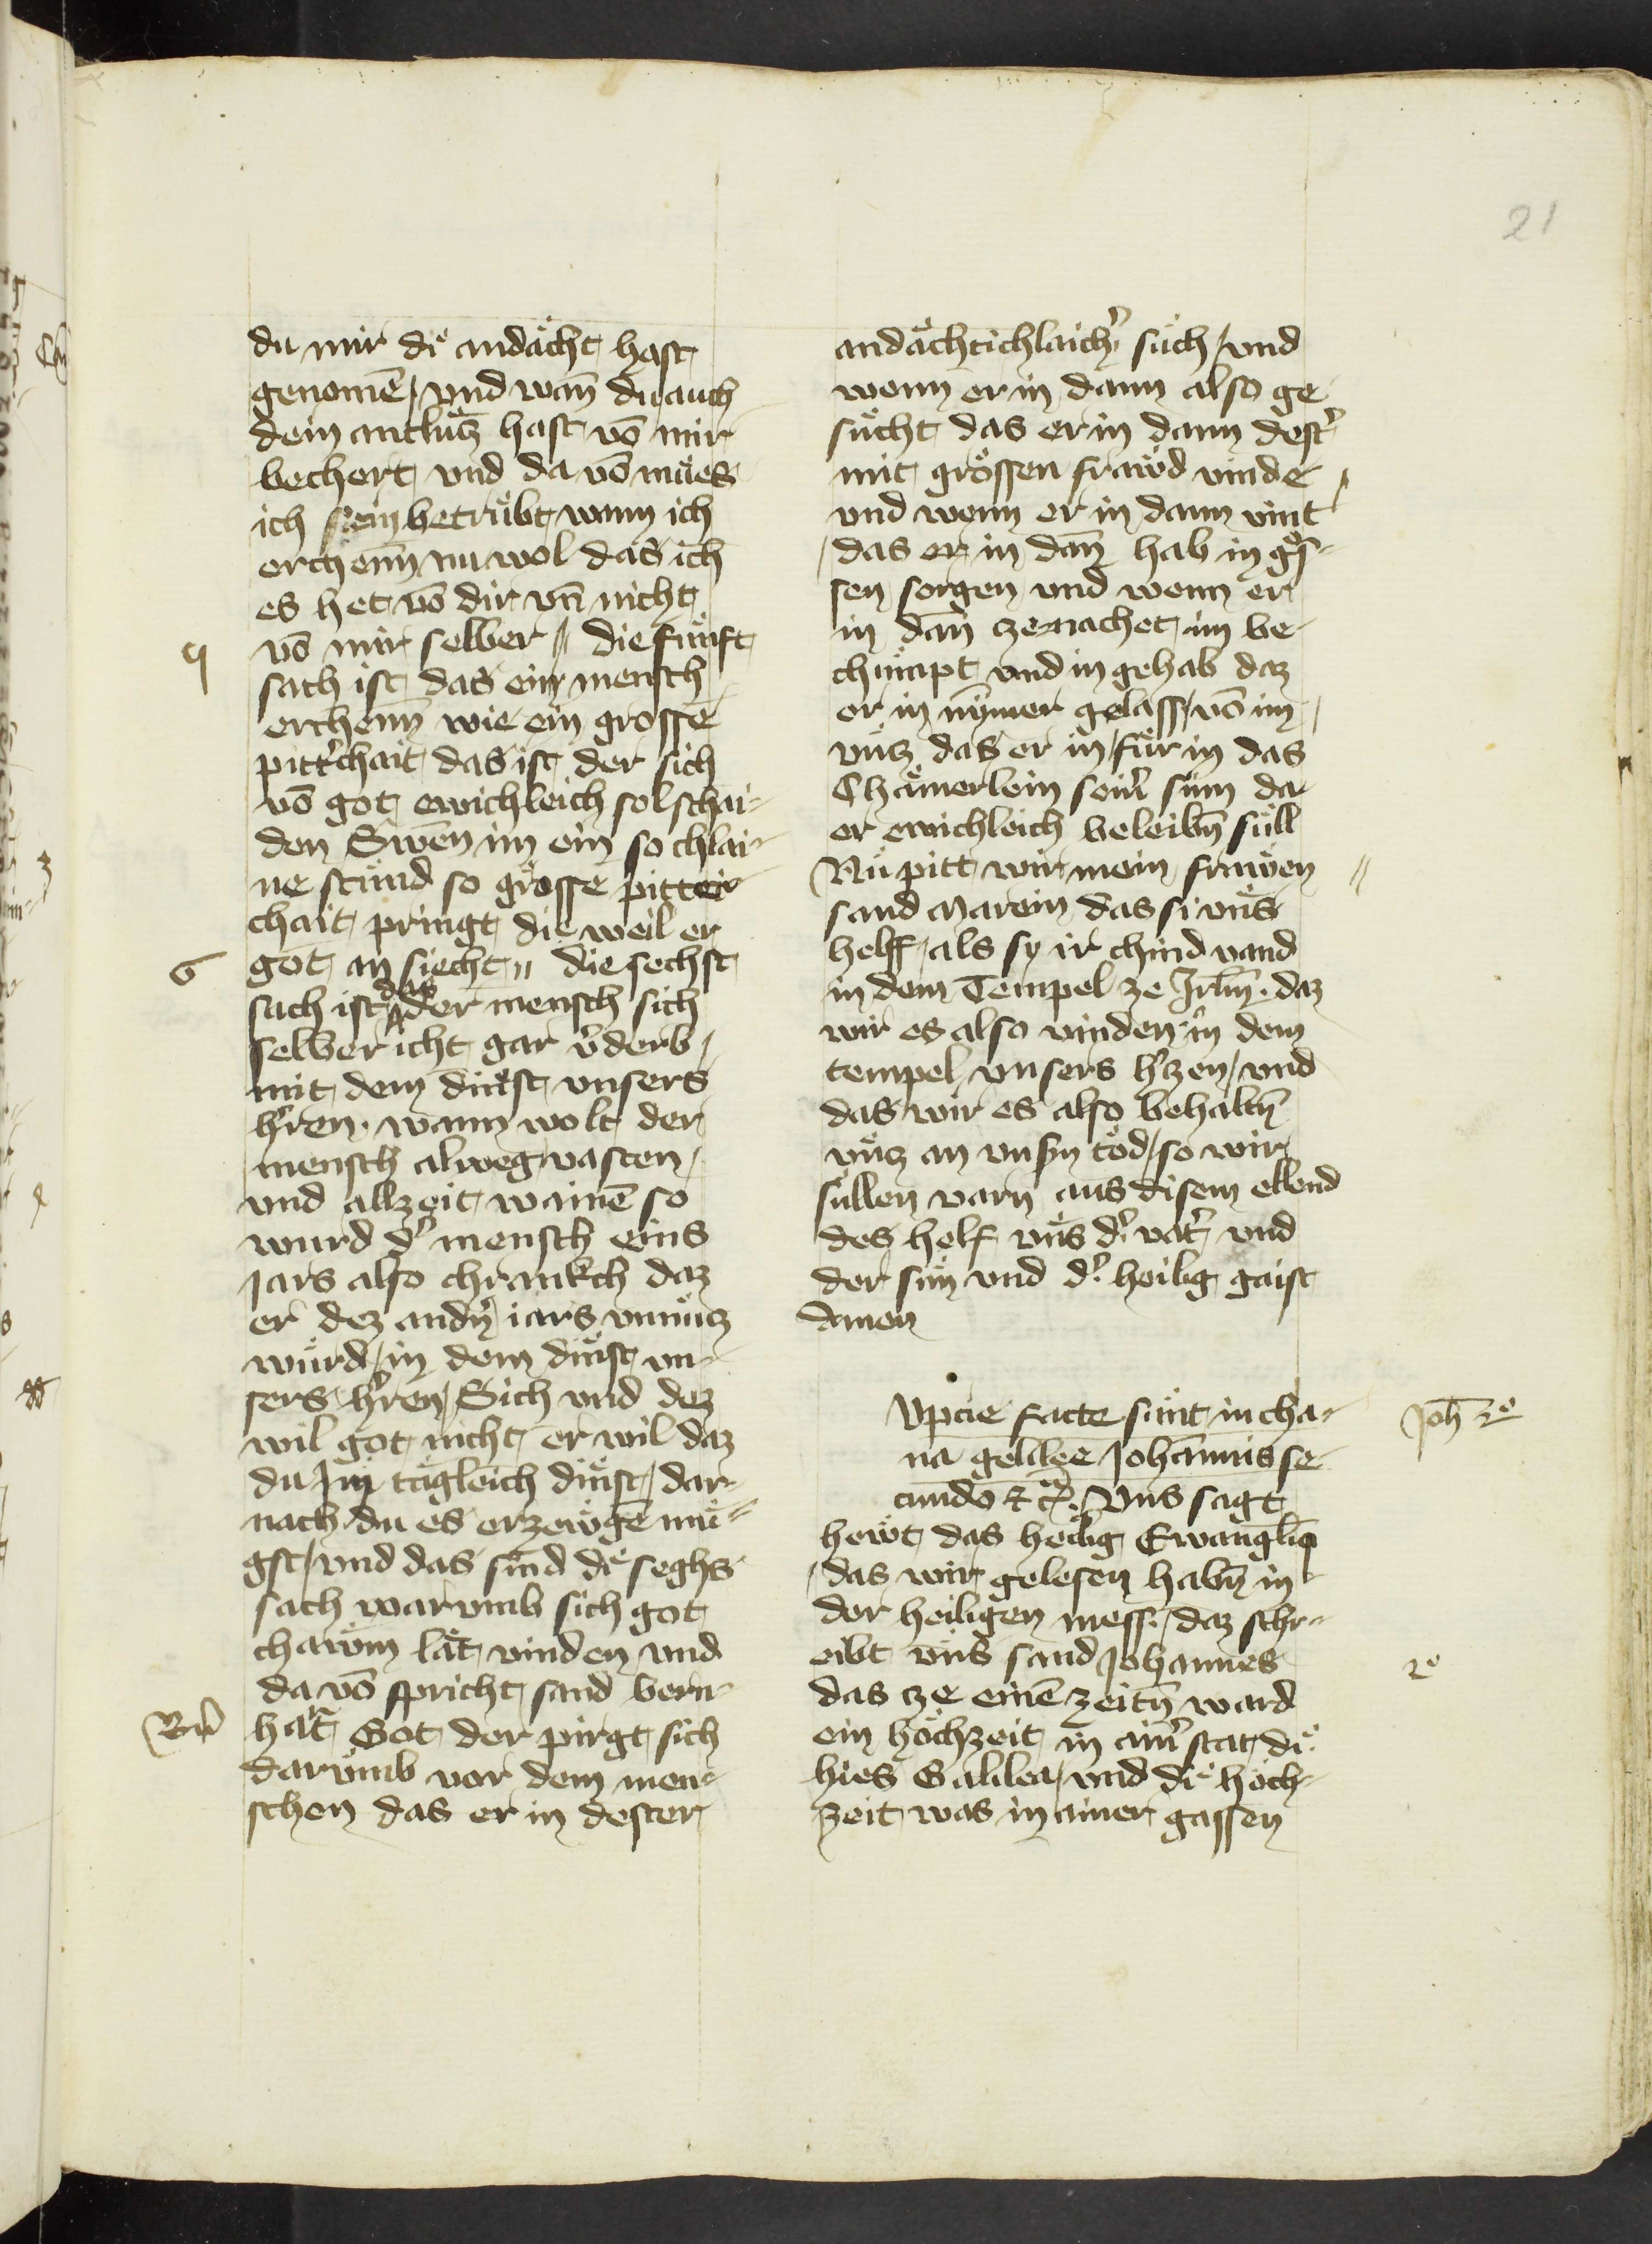 21
du mir die andächt hast
genomē / vnd wan̄ du auch
dein antlütz hast vō mir
bechert vnd da vō mües
ich sein betrübt wann ich
erchenn nu wol das ich
es het vō dir vn̄ nicht
vō mir selber // die fünft
sach ist das ein mensch
erchenn wie ein grosse
pitt'chait das ist der sich
vō got ewichleich sol schai-
den Swen im ein so chlai-
ne stünd so grösse pitter
chait pringt die weil er
got an siecht // die sechst
sach ist das der mensch sich
selber icht gar v'derb /
mit dem dinst vnsers
h'ren . wann wolt der
mensch alweg vasten /
vnd allzeit wainē so
wurd d' mensch eins
Jars also chrankch daz
er dez andn' iars vnnütz
würd / in dem dinst vn-
sers h'ren / Sich vnd dez
wil got nicht er wil daz
du Im tägleich dinst / dar-
nach du es erzewgē mü-
gst / vnd das sind die seghs
sach warumb sich got
chawm lät vinden vnd
da vō spricht sand bern-
hart Got der pirgt sich
darumb vor dem men-
schen das er in dester
5
6
Bern'
andächtichlaich' such / vnd
wenn er in dann also ge-
sücht das er in dann dest'
mit grössen frawd vinde /
vnd wenn er in dann vint
/ das er in dan̄ hab in grö-
sen sorgen vnd wenn er
in dan̄ ze nachet im be-
chümpt vnd in gehab daz
er in nymer gelass / vō im /
vütz das er in für in das
Chämerlein sein' sunn da
er ewichleich beleibn̄ süll
Nu pitt wir mein frawen //
sand Marein das si vns
helff / als sy ir chind vand
in dem Tempel ze Jrl̄m . daz
wir es also vinden in dem
tempel vnsers h'zen / vnd
das wir es also behaltn̄
vütz an vnsn tod / so wir
süllen varn aus disem ellend
des helf vns d' vat' vnd
der sun vnd d' heilig gaist
Amen
Vpcie facte sunt in cha-
na gelilee Johannis se-
cundo ⁊ c̄ . Vns sagt
hewt das heilig Ewangl̄iū
/ das wir gelesen habn̄ in
der heiligen mess . / daz schr-
eibt vns sand Johannes
das ze einē zeitn̄ ward
ein höchzeit in ain' stat die
hies Galilea / vnd die höch-
zeit was in ainer gassen
Joh̄ 2º
2º